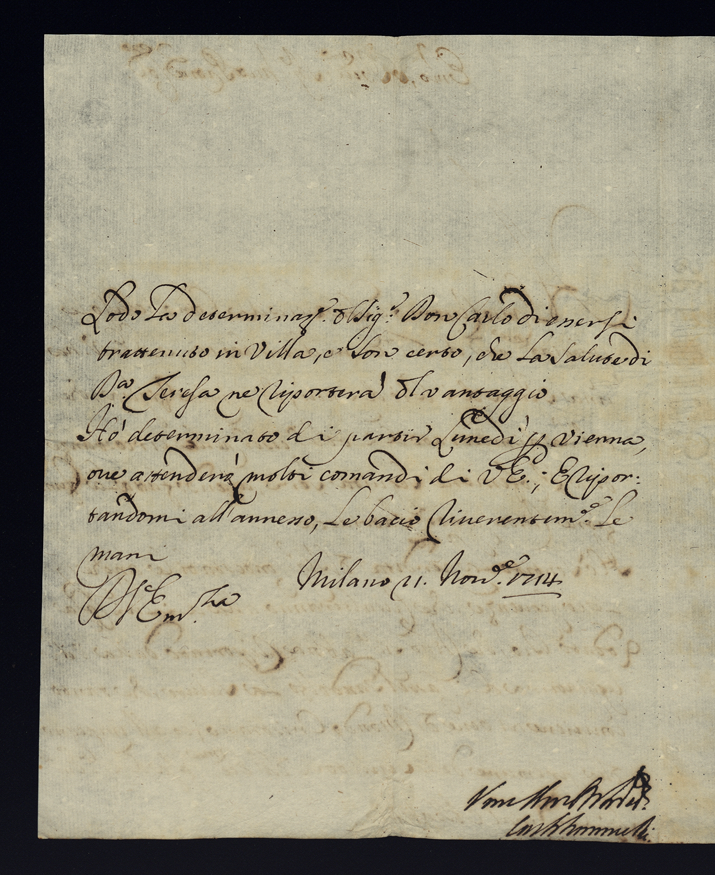 Lodo La determinaz.e del Sig.r Don Carlo di essersi
trattenuto in Villa, e son certo, che La Salute di
D.a Teresa ne riporterà del vantaggio
Hò determinato di partir Lunedì p Vienna,
ove attenderà molti comandi di V.E.; E ripor-
tandomi all'annesso, Le bacio riverentem.e Le
mani
Milano 21. Nov.e 1714